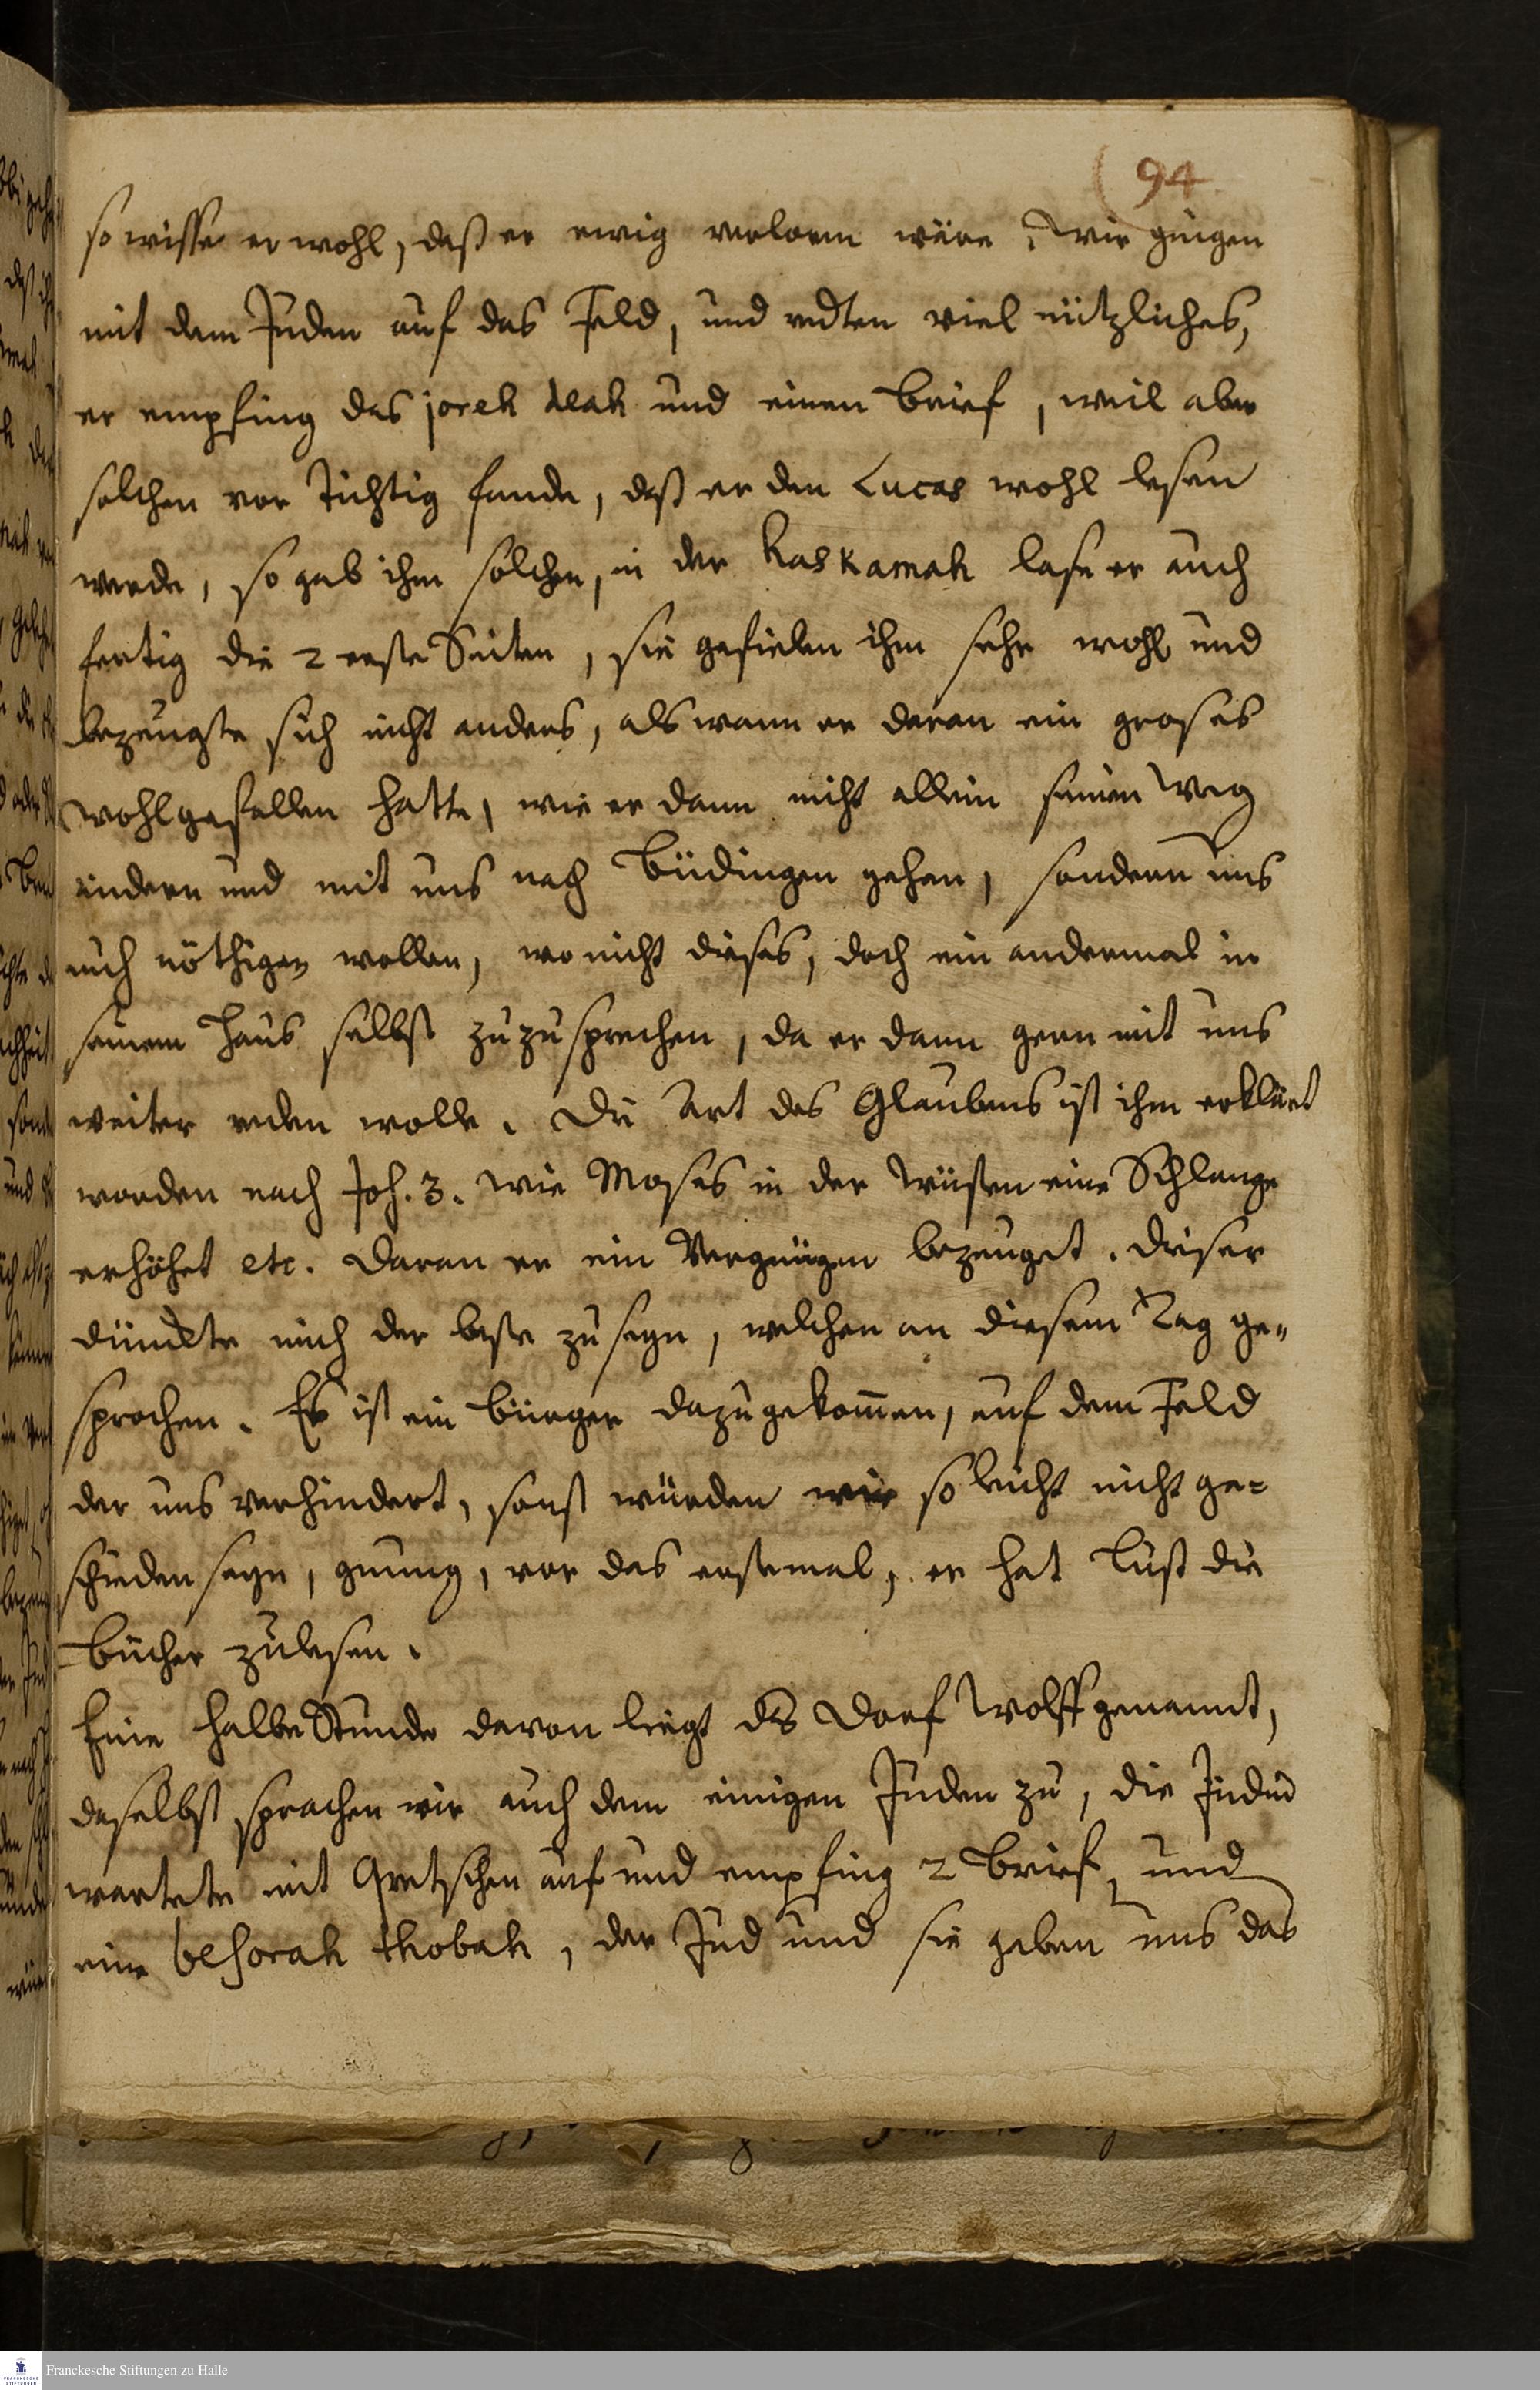 94
so wisse er wohl, daß er ewig verloren wäre. Wir gingen
mit dem Juden auf das Feld, und redten viel nützliches,
er empfing das joreh deah und einen Brief, weil aber
solchen vor tüchtig fande, daß er den Lucas wohl lesen
werde, so gab ihm solchen, in der haskamah lase er auch
fertig die 2 erste Seiten, sie gefielen ihm sehr wohl und
bezeugte sich nicht anders, als wann er daran ein groses
Wohlgefallen hatte, wie er dann nicht allein seinen Weg
ändern und mit uns nach Büdingen gehen, sondern uns
auch nöthigen wollen, wo nicht dieses, doch ein andermal in
seinem Haus selbst zuzusprechen, da er dann gern mit uns
weiter reden wolle. Die Art des Glaubens ist ihm erklärt
worden nach Joh. 3. wie Moses in der Wüsten eine Schlange
erhöhet etc. daran er ein Vergnügen bezeuget. Dieser
dünckte mich der beste zu seyn, welchen an diesem Tag ge-
sprochen. Es ist ein Bürger dazugekommen, auf dem Feld
der uns verhindert, sonst würden wir so leicht nicht ge-
schieden seyn, genung, vor das erstemal, er hat Lust die
Bücher zulesen.
Eine halbe Stunde davon liegt das Dorf Wolff genannt,
daselbst sprachen wir auch dem einigen Juden zu, die Jüdin
wartete mit Quetschen auf und empfing 2 Brief, und
eine besorah thobah, der Jud und sie gaben uns das
Franckesche Stiftungen zu Halle